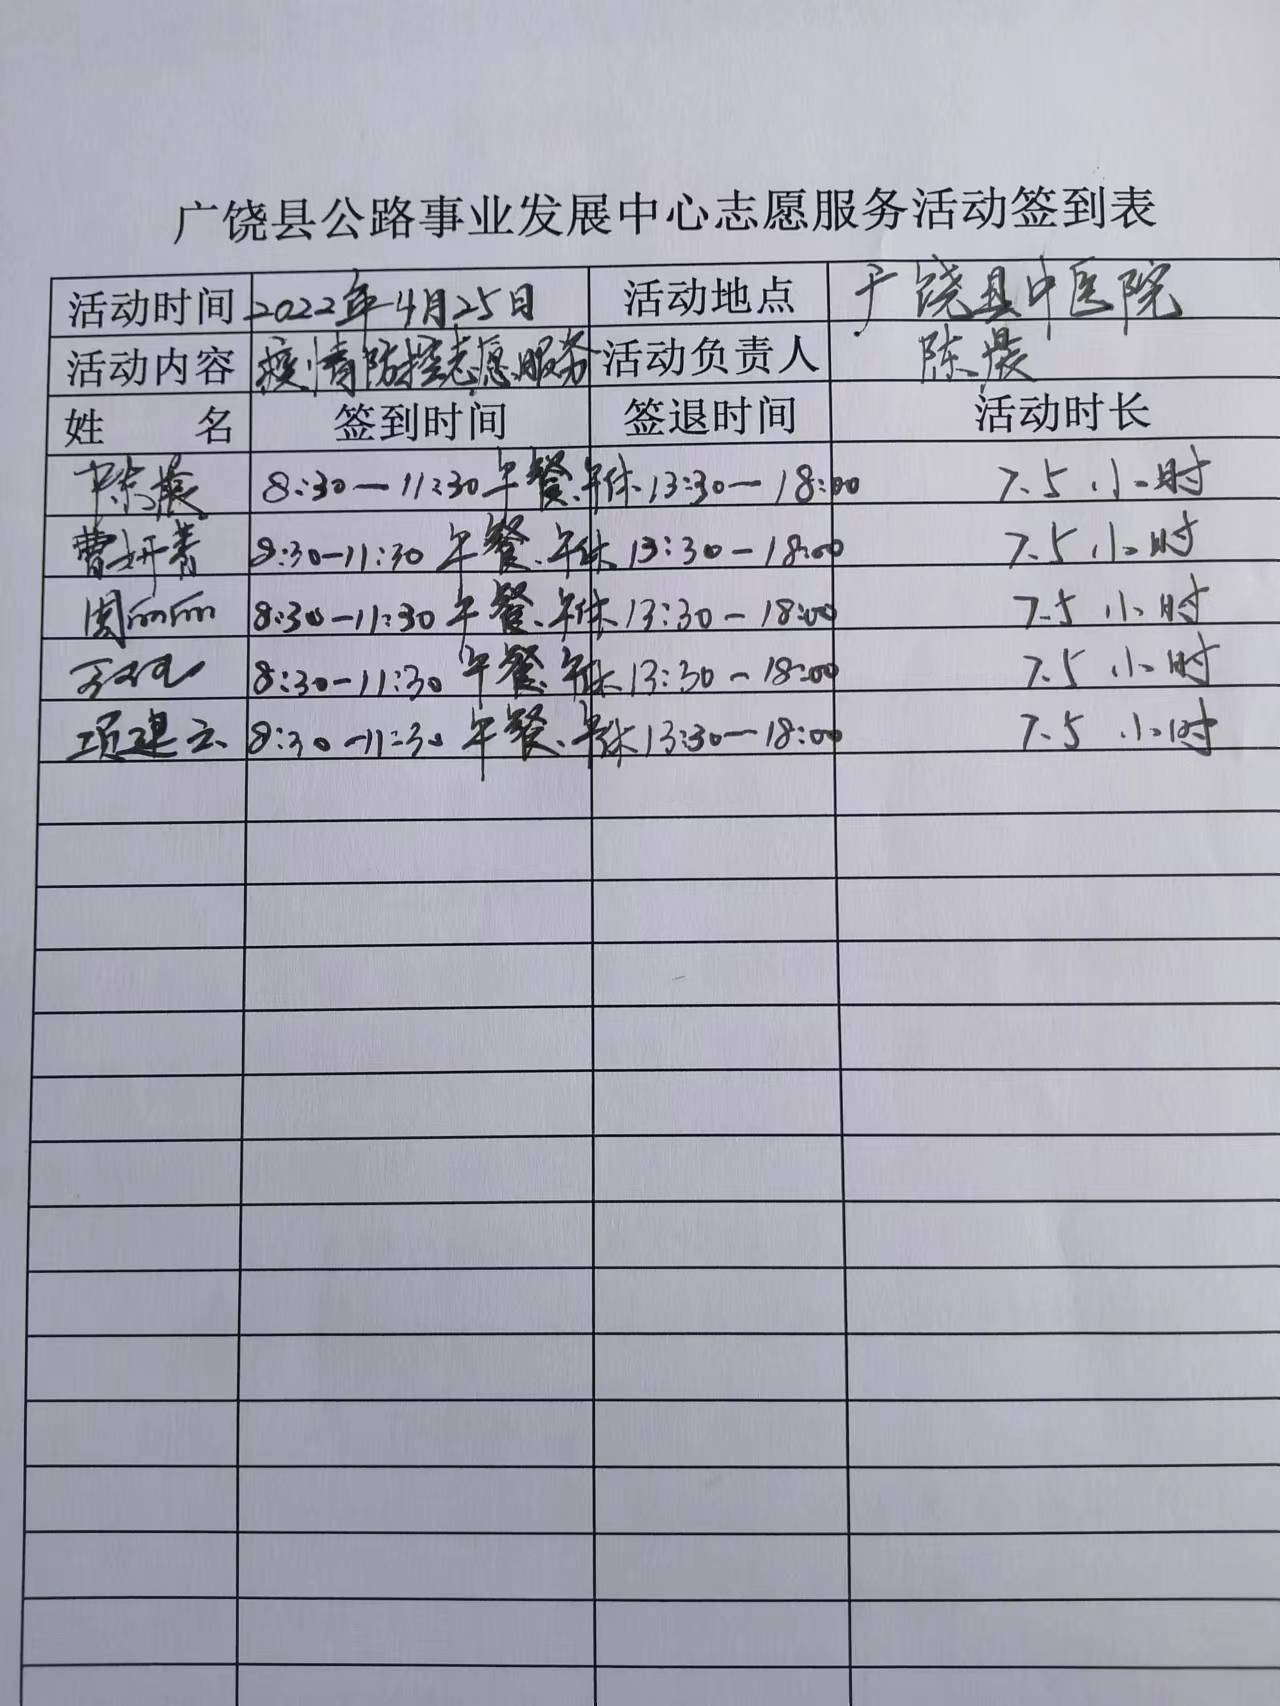 广饶县公路事业发展中心志愿服务活动签到表
活动时间 2022年4月25日 活动地点 广饶县中医院
活动内容 疫情防控志愿服务 活动负责人 陈晨
姓 名 签到时间 签退时间 活动时长
陈晨 8:30—11:30 午餐、午休 13:30—18:00 7.5小时
曹妍青 8:30—11:30 午餐、午休 13:30—18:00 7.5小时
周丽丽 8:30—11:30 午餐、午休 13:30—18:00 7.5小时
8:30—11:30 午餐、午休 13:30—18:00 7.5小时
项建云 8:30—11:30 午餐、午休 13:30—18:00 7.5小时